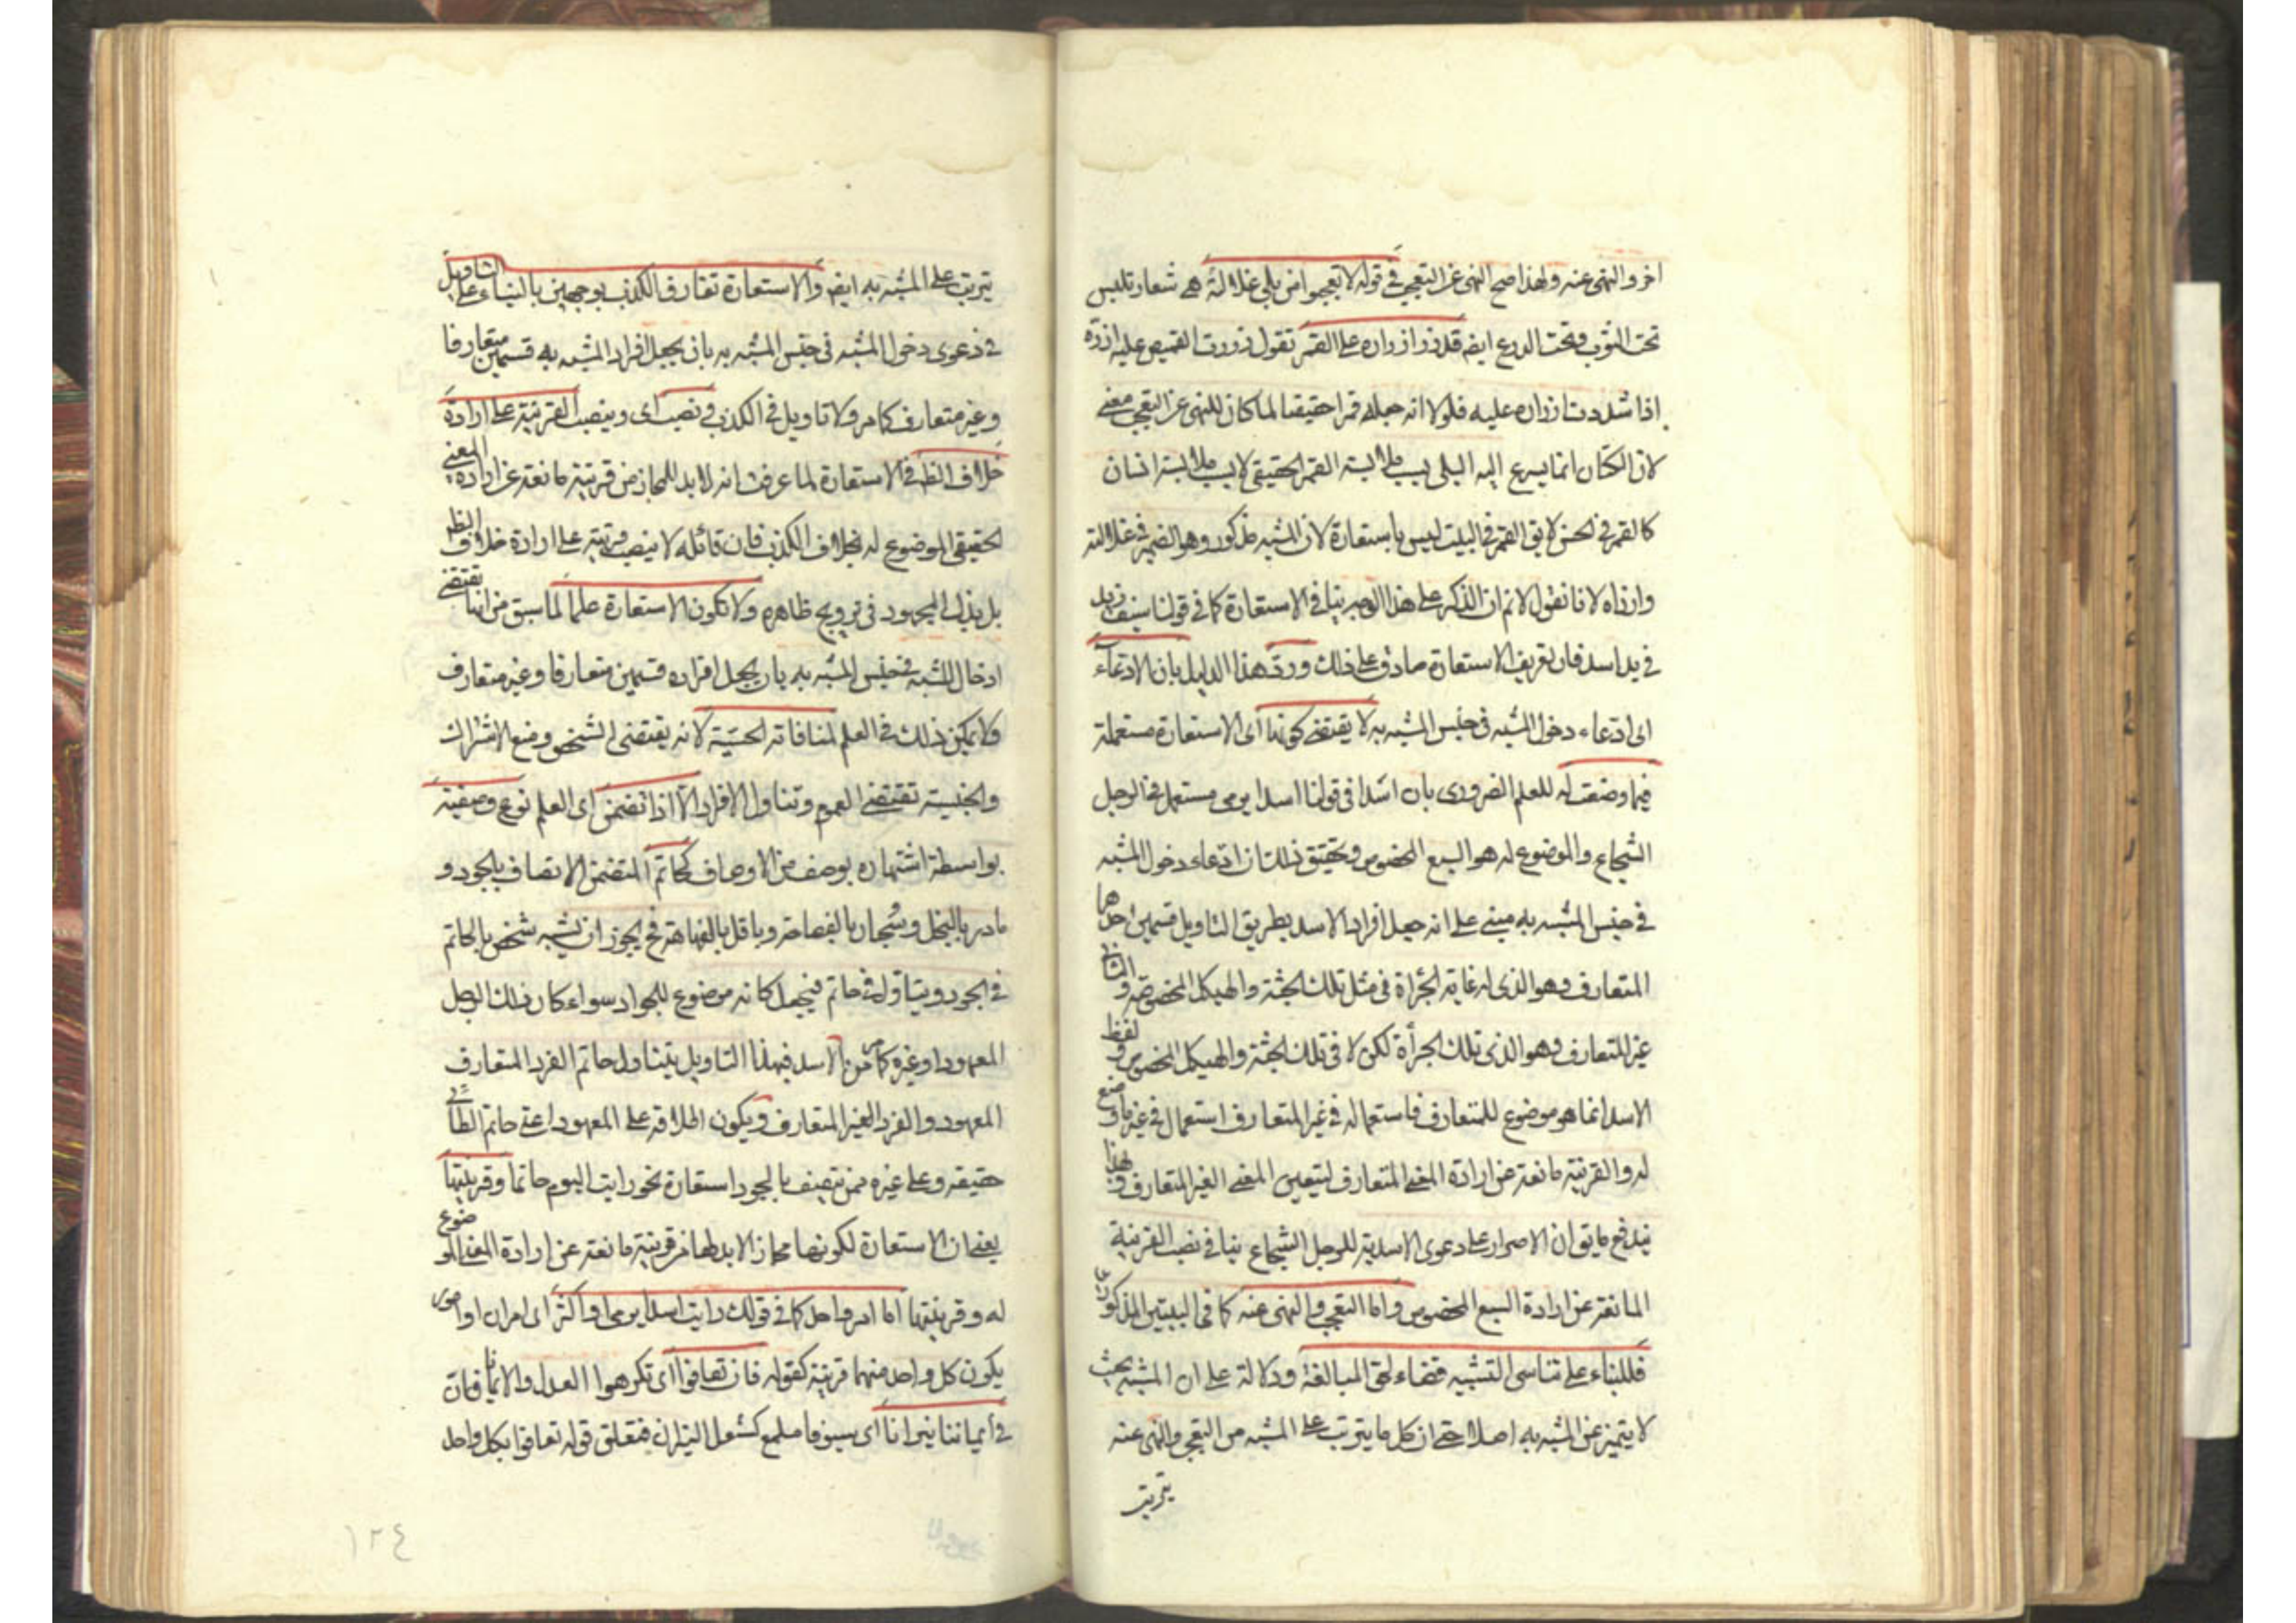 اخر والنهى عنه ولهذا صح النهى عن التعجب فى قوله لا تعجبوا من بلى غلالته هى شعار تلبس
تحت الثوب وتحت الدرع ايضم قد زر ازراره على القمر تقول زررت القميص عليه ازره
اذا شددت ازراره عليه فلولا انه جعله قمرا حقيقيا لما كان للنهى عن التعجب معنى
لان الكتان انما يسرع اليه البلى بسبب ملابسة القمر الحقيقى لا بسبب ملابسة انسان
كالقمر فى الحسن لا يق القمر فى البيت ليس باستعارة لان المشبه مذكور وهو الضمير فى غلالته
وازراه لانا نقول لا نم ان الذكر على هذا الوجه ينافى الاستعارة كما فى قولنا سيف زيد
فى يد اسد فان تعريف الاستعارة صادق على ذلك ورد هذا الدليل بان الادعاء
اى ادعاء دخول المشبه فى جنس المشبه به لا يقتضى كونها اى الاستعارة مستعملة
فيما وضعت له للعلم الضرورى بان اسدا فى قولنا اسدا يرمى مستعمل فى الرجل
الشجاع والموضوع له هو السبع المخصوص وتحقيق ذلك ان ادعاء دخول المشبه
فى جنس المشبه به مبنى على انه جعل افراد الاسد بطريق التاويل قسمين احدهما
المتعارف وهو الذى له غاية الجرأة فى مثل تلك الجثة والهيكل المخصوصة والثانى
غير المتعارف وهو الذى تلك الجرأة لكن لا فى تلك الجثة والهيكل المخصوص ولفظ
الاسد انما هو موضوع للمتعارف فاستعماله فى غير المتعارف استعمال فى غير ما وضع
له والقرينة مانعة عن ارادة المعنى المتعارف ليتعين المعنى الغير المتعارف وبهذا
يندفع ما يق ان الاصرار على دعوى الاسدية للرجل الشجاع ينافى نصب القرينة
المانعة عن ارادة السبع المخصوص واما التعجب والنهى عنه كما فى البيتين المذكورين
فللبناء على تناسى التشبيه قضاء لحق المبالغة ودلالة على ان المشبه بحيث
لا يتميز عن المشبه به اصلا حتى ان كل ما يترتب على المشبه من التعجب والنهى عنه
يترتب
يترتب على المشبه به ايضم والاستعارة تفارق الكذب بوجهين بالبناء على التاويل
فى دعوى دخول المشبه فى جنس المشبه به بان يجعل افراد المشبه به قسمين متعارفا
وغير متعارف كما مر ولا تاويل فى الكذب ونصب اى وبنصب القرينة على ارادة
خلاف الظم فى الاستعارة لما عرفت انه لا بد للمجاز من قرينة مانعة عن ارادة المعنى
الحقيقى الموضوع له بخلاف الكذب فان قائله لا ينصب قرينة على ارادة خلاف الظم
بل يبذل المجهود فى ترويج ظاهره ولا تكون الاستعارة علما لما سبق من انها تقتضى
ادخال المشبه فى جنس المشبه به بان يجعل افراده قسمين متعارفا وغير متعارف
ولا يمكن ذلك فى العلم لمنافاته الجنسية لانه يقتضى التشخص ومنع الاشتراك
والجنسية تقتضى العموم وتناول الافراد الا اذا تضمن اى العلم نوع وصفية
بواسطة اشتهاره بوصف من الاوصاف كحاتم المتضمن الاتصاف بالجود و
مادر بالبخل وسحبان بالفصاحة وباقل بالفهاهة فح يجوز ان يشبه شخص بالحاتم
فى الجود ويتاول فى حاتم فيجعل كانه موضوع للجواد سواء كان ذلك الرجل
المعهود او غيره كما مر من الاسد فبهذا التاويل يتناول حاتم الفرد المتعارف
المعهود والفرد الغير المتعارف ويكون اطلاقه على المعهود اعنى حاتم الطائى
حقيقة وعلى غيره ممن يتصف بالجود استعارة نحو رايت اليوم حاتما وقرينتها
يعنى ان الاستعارة لكونها مجازا لا بد لها من قرينة مانعة عن ارادة المعنى الموضوع
له وقرينتها اما امر واحد كما فى قولك رايت اسدا يرمى او اكثر اى امران او امور
يكون كل واحد منهما قرينة كقوله فان تعافوا اى تكرهوا العدل والايمانا فان
فى ايماننا نيرانا اى سيوفا تلمع كشعل النيران فتعلق قوله تعافوا بكل واحد
١٢٤